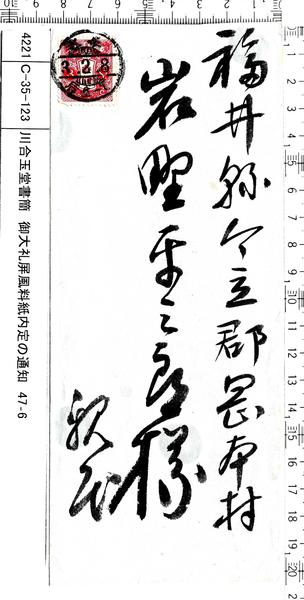 福井縣今立郡岡本村
岩野平三郎様
親展
3.2.8
4221 C-35-123 川合玉堂書簡 御大礼屏風料紙内定の通知 47-6